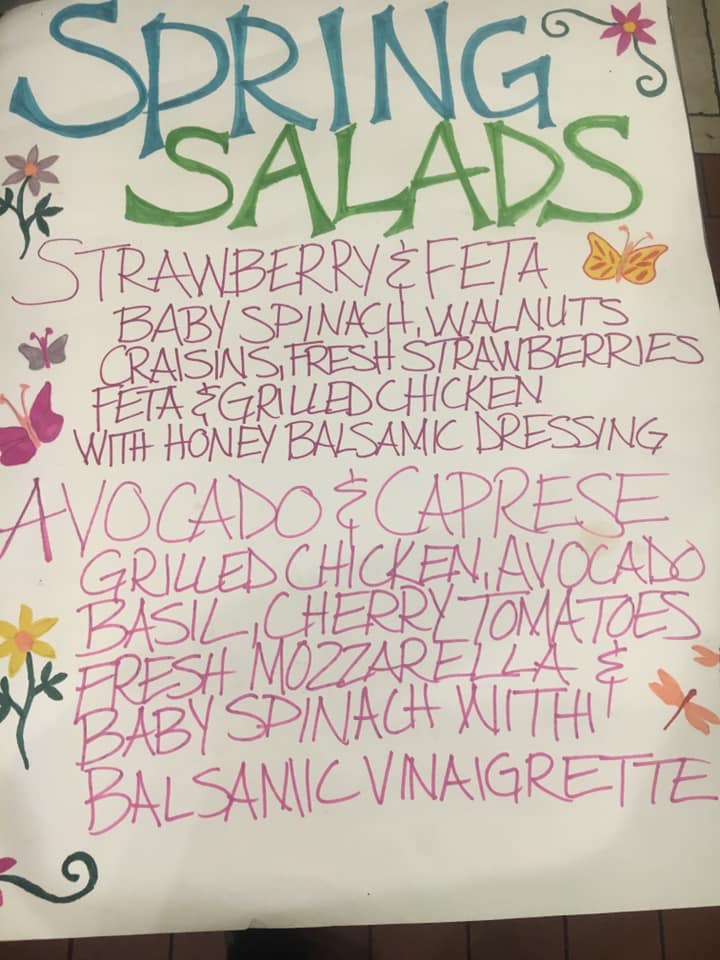 SPRING
SALADS
STRAWBERRY & FETA
BABY SPINACH, WALNUTS
CRAISINS, FRESH STRAWBERRIES
FETA & GRILLED CHICKEN
WITH HONEY BALSAMIC DRESSING
AVOCADO & CAPRESE
GRILLED CHICKEN, AVOCADO
BASIL, CHERRY TOMATOES
FRESH MOZZARELLA &
BABY SPINACH WITH
BALSAMIC VINAIGRETTE